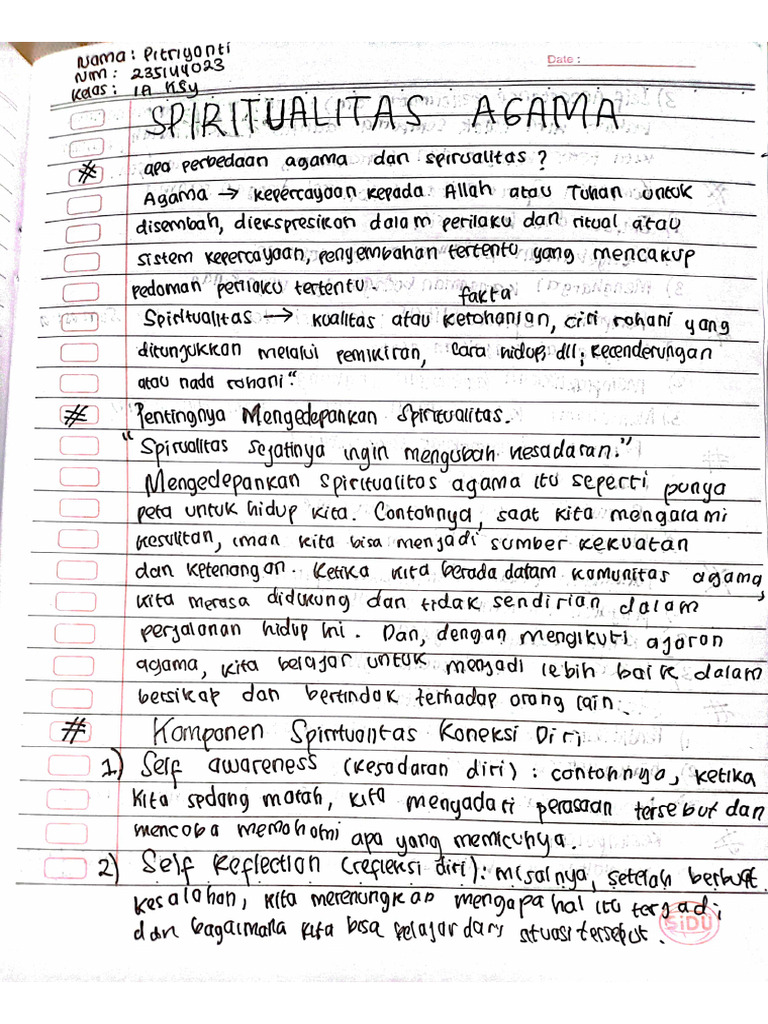 Nama : Pitriyanti
Nim : 235144023
Kelas : 1A KSy
Date :
SPIRITUALITAS AGAMA
# apa perbedaan agama dan spirualitas ?
Agama → kepercayaan kepada Allah atau Tuhan untuk
disembah, diekspresikan dalam perilaku dan ritual atau
sistem kepercayaan, penyembahan tertentu yang mencakup
pedoman perilaku tertentu.
fakta
Spiritualitas → kualitas atau kerohanian, ciri rohani yang
ditunjukkan melalui pemikiran, cara hidup, dll; kecenderungan
atau nada rohani."
# Pentingnya Mengedepankan Spiritualitas.
"Spirualitas sejatinya ingin mengubah kesadaran."
Mengedepankan spiritualitas agama itu seperti punya
peta untuk hidup kita. Contohnya, saat kita mengalami
kesulitan, iman kita bisa menjadi sumber kekuatan
dan ketenangan. Ketika kita berada dalam komunitas agama,
kita merasa didukung dan tidak sendirian dalam
perjalanan hidup ini. Dan, dengan mengikuti ajaran
agama, kita belajar untuk menjadi lebih baik dalam
bersikap dan bertindak terhadap orang lain.
# Komponen Spiritualitas Koneksi Diri
1) Self awareness (kesadaran diri) : contohnya, ketika
kita sedang marah, kita menyadari perasaan tersebut dan
mencoba memahami apa yang memicunya.
2) Self Reflection (refleksi diri) : misalnya, setelah berbuat
kesalahan, kita merenungkan mengapa hal itu terjadi
dan bagaimana kita bisa belajar dari situasi tersebut.
SiDU